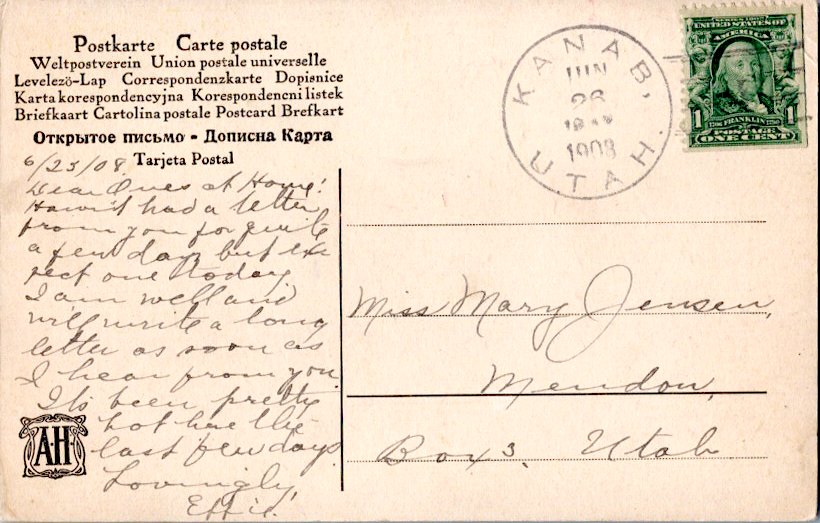 Postkarte Carte postale
Weltpostverein Union postale universelle
Levelezö-Lap Correspondenzkarte Dopisnice
Karta korespondencyjna Korespondencni listek
Briefkaart Cartolina postale Postcard Brefkort
Открытое письмо - Дописна Карта
Tarjeta Postal
6/25/08.
Dear Ones at Home:
Havn't had a letter
from you for quite
a few days but ex
pect one today
I am well and
will write a long
letter as soon as
I hear from you.
Its been pretty
hot here the
last few days.
Lovingly,
Effie.
A.H.
KANAB,
JUN
26
1908
UTAH.
SERIES 1902
UNITED STATES OF
AMERICA
1706 FRANKLIN 1790
1 1
POSTAGE
ONE CENT
Miss Mary Jensen,
Mendon,
Box 3. Utah